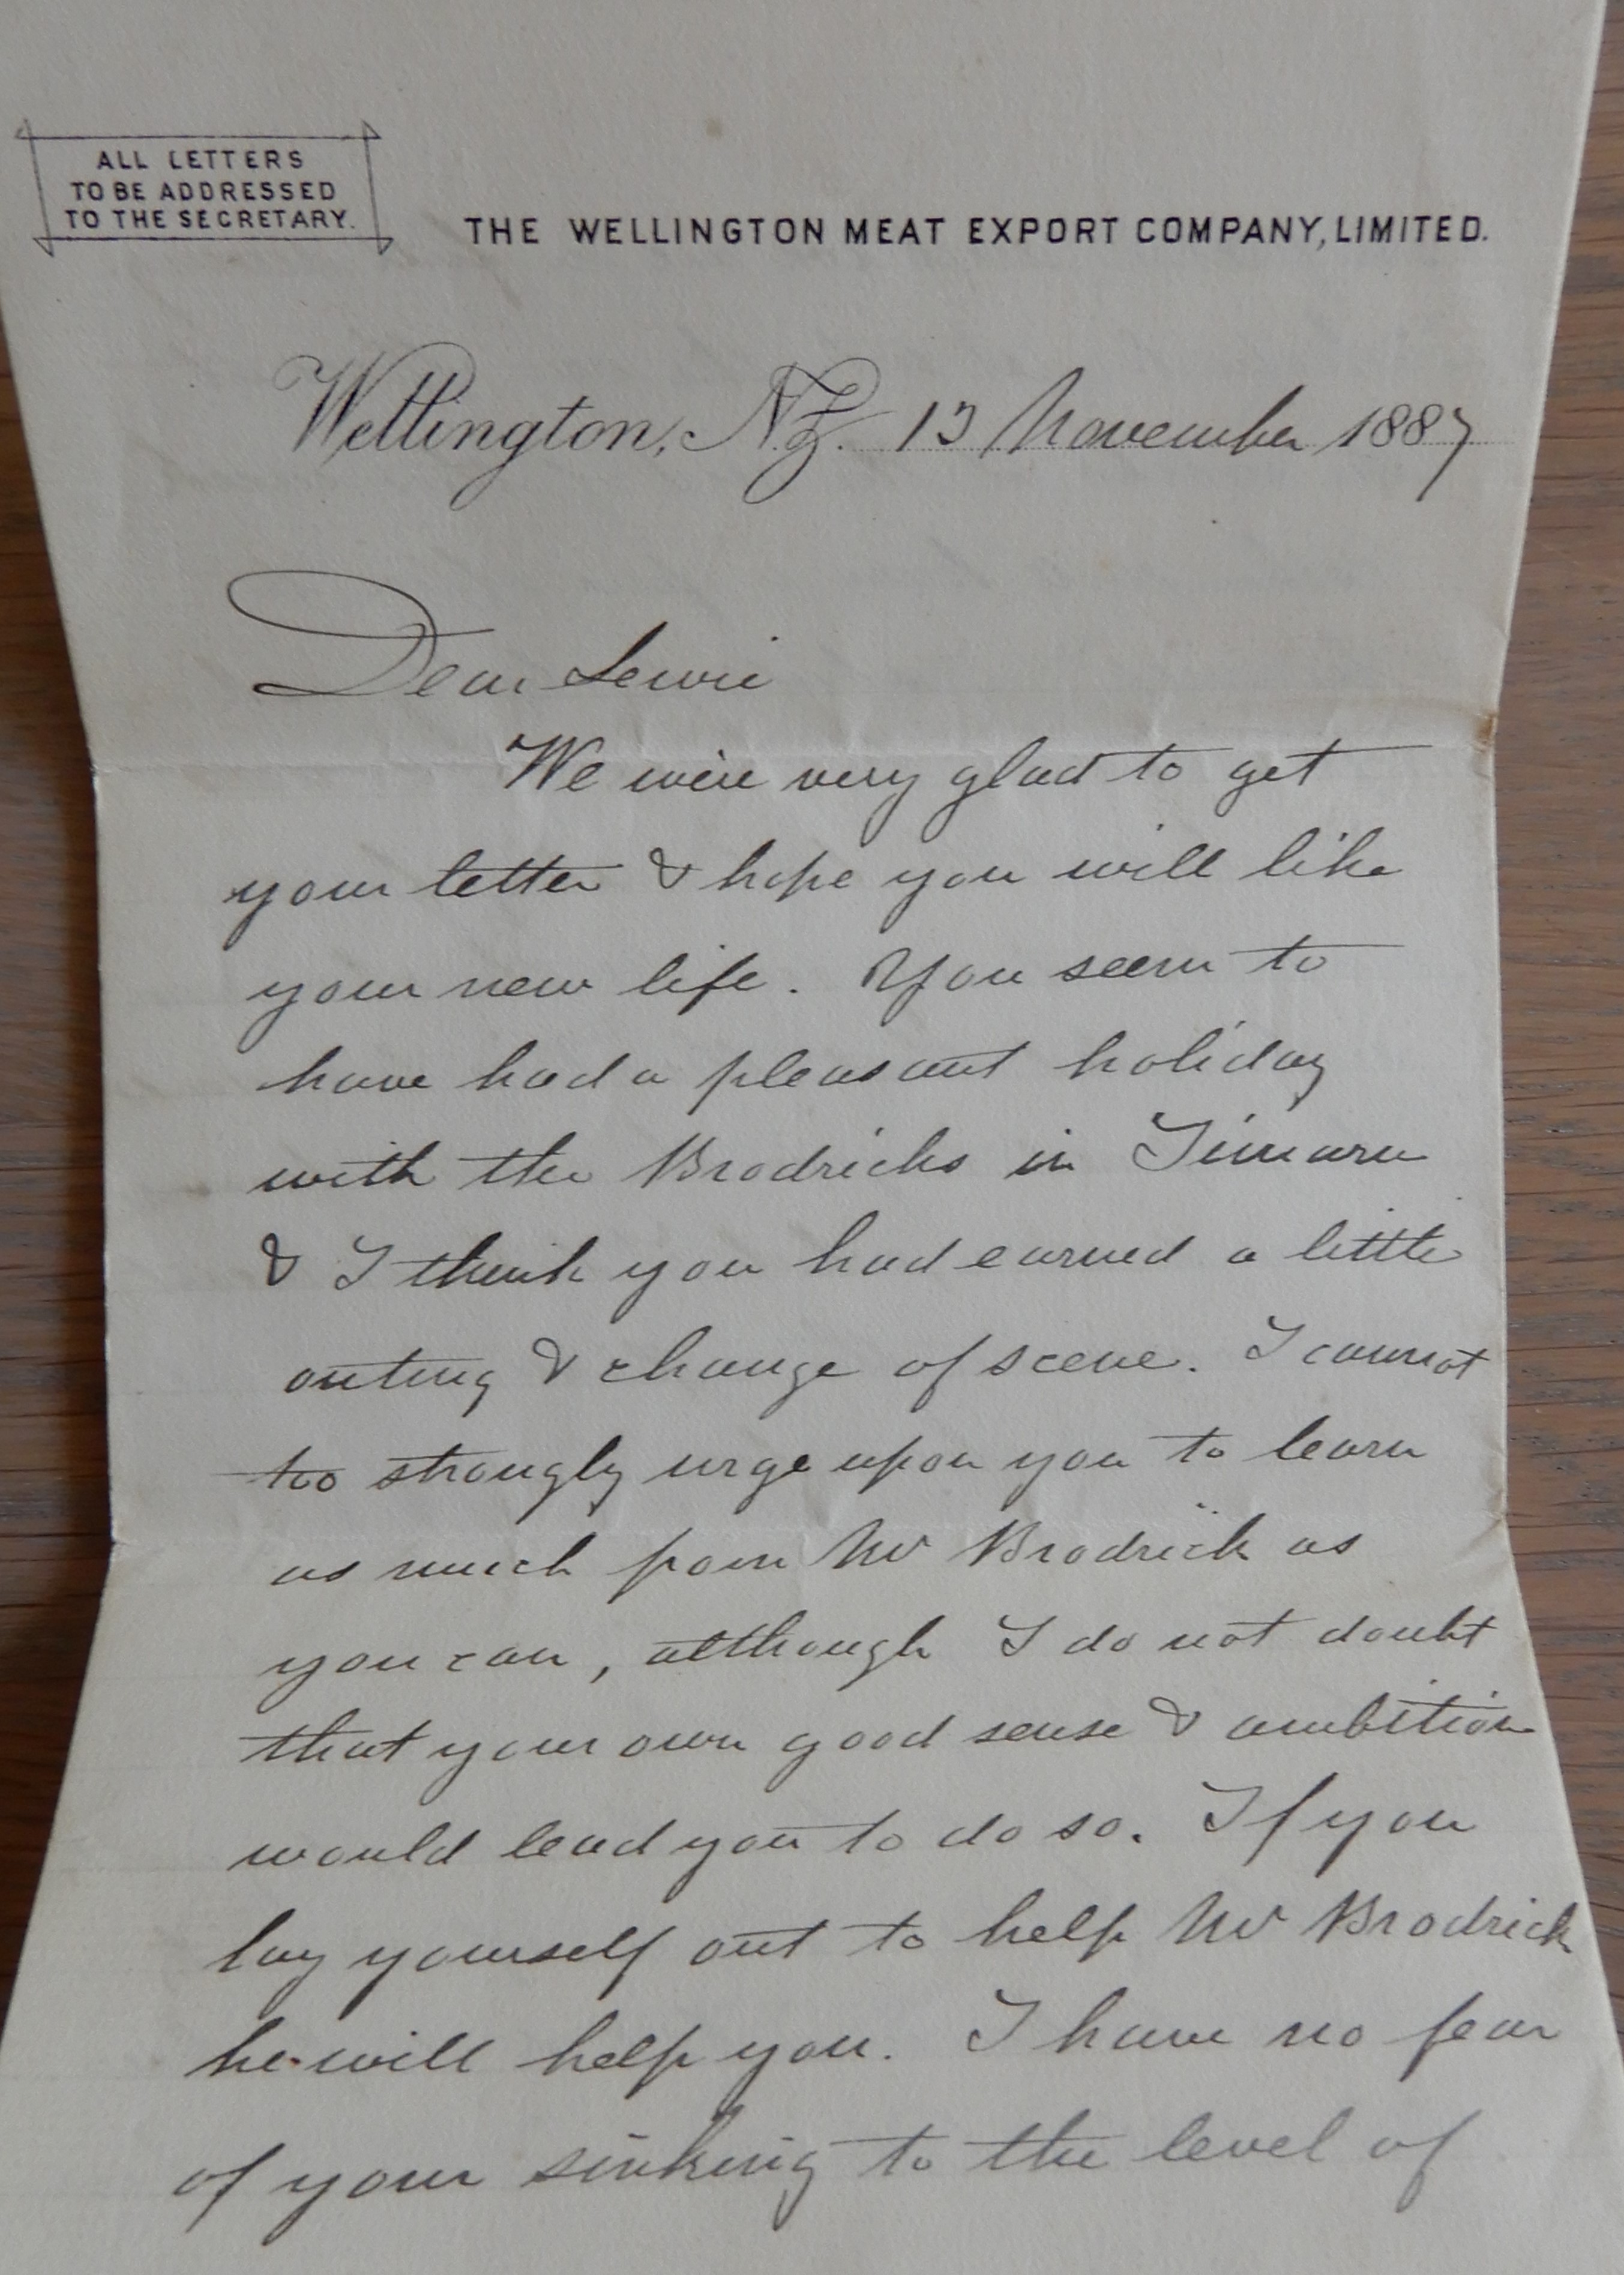 ALL LETTERS
TO BE ADDRESSED
TO THE SECRETARY.
THE WELLINGTON MEAT EXPORT COMPANY, LIMITED.
Wellington, N.Z. 13 November 1887
Dear Lewie
We were very glad to get
your letter & hope you will like
your new life. You seem to
have had a pleasant holiday
with the Brodricks in Timaru
& I think you had earned a little
outing & change of scene. I cannot
too strongly urge upon you to learn
as much from Mr Brodrick as
you can, although I do not doubt
that your own good sense & ambition
would lead you to do so. If you
lay yourself out to help Mr Brodrick
he will help you. I have no fear
of your sinking to the level of